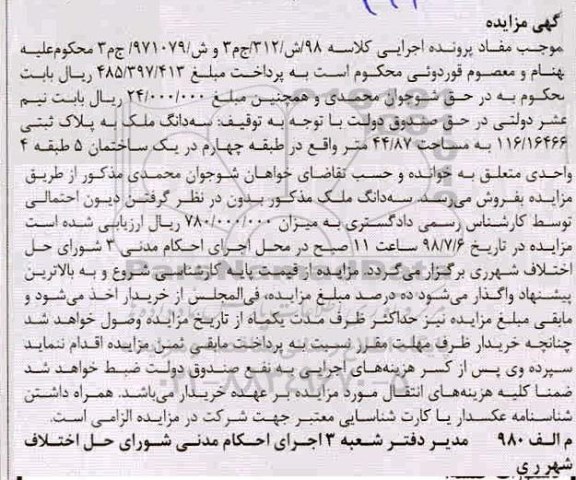 گهی مزایده
بموجب مفاد پرونده اجرایی کلاسه ۹۸/ش/۳۱۲/ج‌م۳ و ش/۹۷۱۰۷۹/ ج‌م۳ محکوم‌علیه
بهنام و معصوم قوردوئی محکوم است به پرداخت مبلغ ۴۸۵/۳۹۷/۴۱۳ ریال بابت
محکوم به در حق شوجوان محمدی و همچنین مبلغ ۲۴/۰۰۰/۰۰۰ ریال بابت نیم
عشر دولتی در حق صندوق دولت با توجه به توقیف: سه‌دانگ ملک به پلاک ثبتی
۱۱۶/۱۶۴۶۶ به مساحت ۴۴/۸۷ متر واقع در طبقه چهارم در یک ساختمان ۵ طبقه ۴
واحدی متعلق به خوانده و حسب تقاضای خواهان شوجوان محمدی مذکور از طریق
مزایده بفروش می‌رسد. سه‌دانگ ملک مذکور بدون در نظر گرفتن دیون احتمالی
توسط کارشناس رسمی دادگستری به میزان ۷۸۰/۰۰۰/۰۰۰ ریال ارزیابی شده است
مزایده در تاریخ ۹۸/۷/۶ ساعت ۱۱ صبح در محل اجرای احکام مدنی ۳ شورای حل
اختلاف شهرری برگزار می‌گردد. مزایده از قیمت پایه کارشناسی شروع و به بالاترین
پیشنهاد واگذار می‌شود ده درصد مبلغ مزایده، فی‌المجلس از خریدار اخذ می‌شود و
مابقی مبلغ مزایده نیز حداکثر ظرف مدت یکماه از تاریخ مزایده وصول خواهد شد
چنانچه خریدار ظرف مهلت مقرر نسبت به پرداخت مابقی ثمن مزایده اقدام ننماید
سپرده وی پس از کسر هزینه‌های اجرایی به نفع صندوق دولت ضبط خواهد شد
ضمنا کلیه هزینه‌های انتقال مورد مزایده بر عهده خریدار می‌باشد. همراه داشتن
شناسنامه عکسدار یا کارت شناسایی معتبر جهت شرکت در مزایده الزامی است.
م الف ۹۸۰ مدیر دفتر شعبه ۳ اجرای احکام مدنی شورای حل اختلاف
شهرری